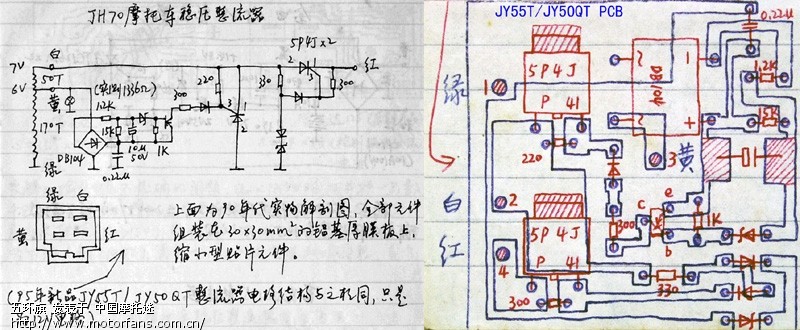 JH70摩托车稳压整流器
白
7V
50T
6V
黄
(实测1336Ω)
1.2K
300
220
5P4J×2
2
红
330
300
3
1
2
170T
15K
10μ
50V
1K
DB104
0.22μ
绿
绿 白
黄
红
上面为90年代实物解剖图,全部元件
组装在30×30mm²的铝基厚膜板上,
缩小型贴片元件。
(95年新品JY55T/JY50QT整流器电路结构与之相同,只是
五环旗 发表于 中国摩托迷
http://www.motorfans.com.cn/
JY55T/JY50QT PCB
绿
1
5P4J
P 41
220
DB104
0.22μ
1.2K
15K
3 黄
白
2
5P4J
P 41
300
c
e
b
1K
红
4
300
330